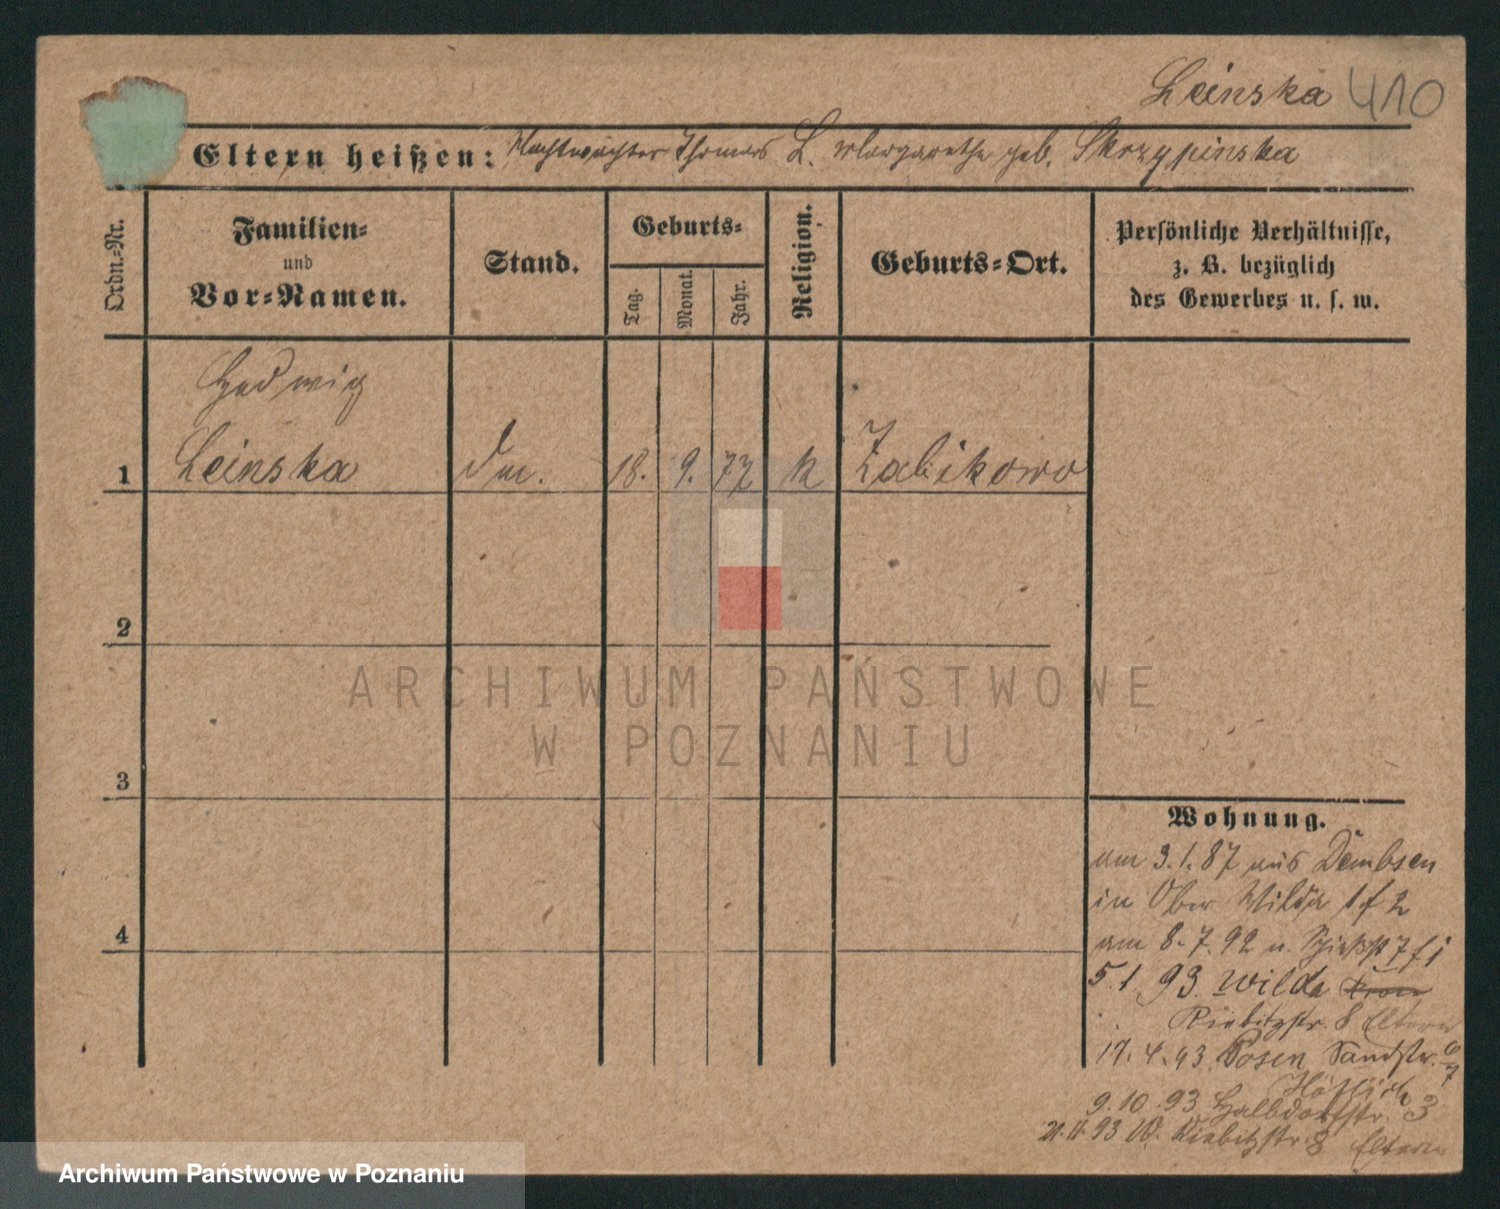 Leinska 410
Eltern heißen: Nachtwächter Thomas L. Margarethe geb. Skrzypinska
Ordn.-Nr.
Familien-
und
Vor-Namen.
Stand.
Geburts-
Tag.
Monat.
Jahr.
Religion.
Geburts-Ort.
Persönliche Verhältnisse,
z. B. bezüglich
des Gewerbes u. s. w.
Hedwig
1 Leinska 18. 9. 77 k Zabikowo
2
3
4
ARCHIWUM PAŃSTWOWE
W POZNANIU
Wohnung.
am 3.1.87 aus Dembsen
in Ober Wilda 1 f 2
am 8.7.92 n. Schießst 7 f i
5.1.93 Wilda
Kiebitzstr. 8 Eltern
17.4.93 Posen Sandstr. 6/7
9.10.93 Halbdorfstr. 3
21.11.93 W. Kiebitzstr. 8 Eltern
Archiwum Państwowe w Poznaniu